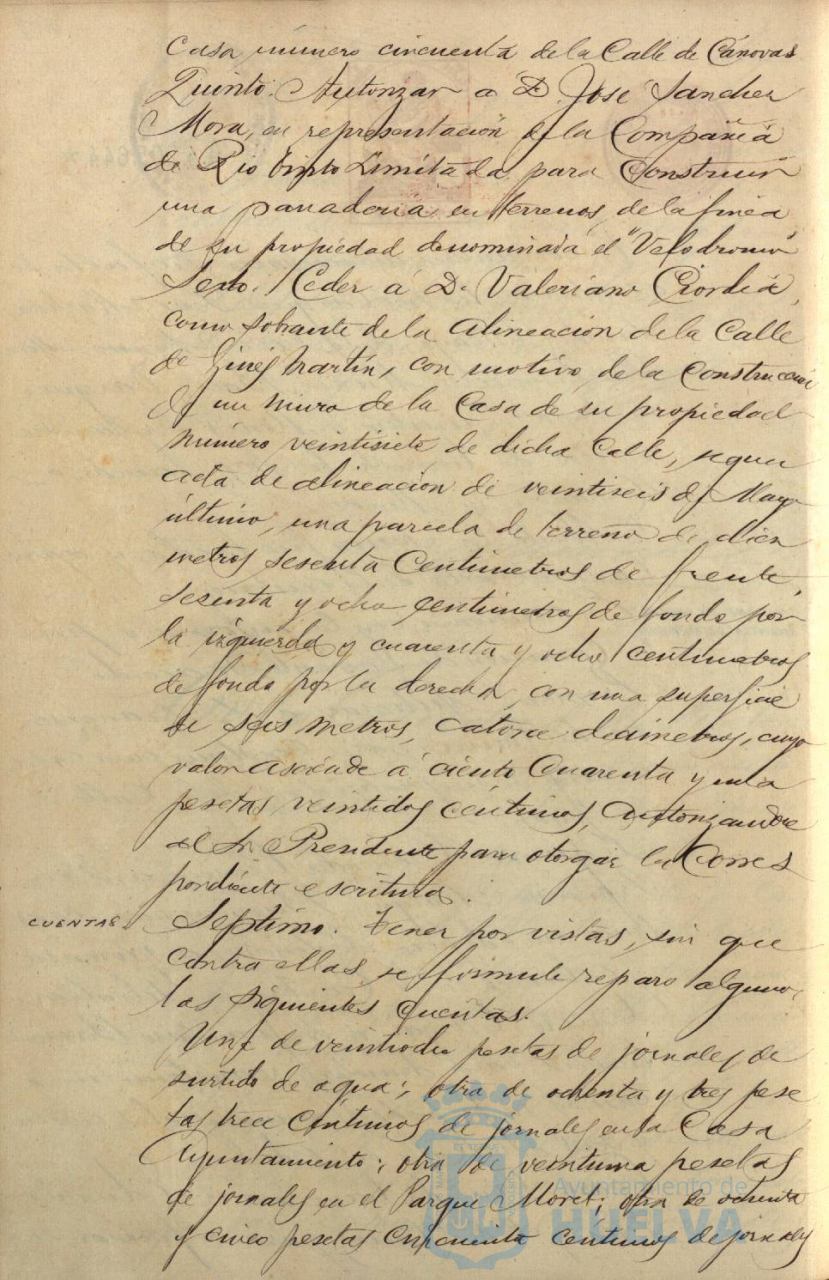 Casa número cincuenta de la Calle de Cánovas
Quinto. Autorizar a D. José Sanchez
Mora, en representación de la Compañia
de Rio tinto Limitada, para Construir
una panaderia en terrenos de la finca
de su propiedad denominada el "Velodromo"
Sexto. Ceder á D. Valeriano
como sobrante de la alineación de la Calle
de Ginés Martín, con motivo de la Construcción
de un muro de la Casa de su propiedad
número veintisiete de dicha Calle, segun
acta de alineación de veintiseis de Mayo
último, una parcela de terreno de diez
metros sesenta Centimetros de frente,
sesenta y ocho centimetros de fondo por
la izquierda y cuarenta y ocho centimetros
de fondo por la derecha, con una superficie
de seis metros, catorce decimetros, cuyo
valor asciende á ciento Cuarenta y una
pesetas veintidos céntimos, autorizandose
al Sr Presidente para otorgar la Corres
pondiente escritura.
CUENTAS Septimo. Tener por vistas, sin que
contra ellas se formule reparo alguno,
las siguientes cuentas.
Una de veintiocho pesetas de jornales de
surtido de agua; otra de ochenta y tres pese
tas trece céntimos de jornales en la Casa
Ayuntamiento; otra de veintiuna pesetas
de jornales en el Parque Moret; otra de ochenta
y cinco pesetas cincuenta centimos de jornales
Ayuntamiento de
HUELVA